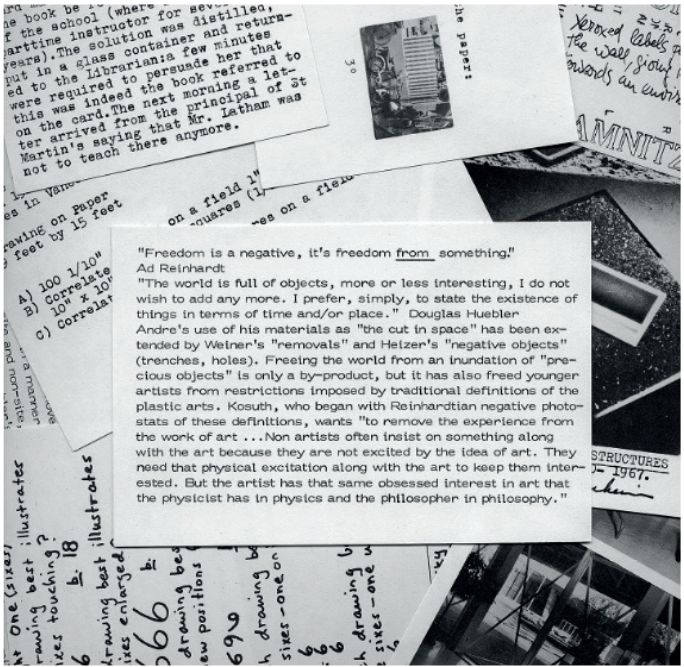 the book be
f the school (where
arttime instructor for seve
years). The solution was distilled,
put in a glass container and return-
ed to the Librarian: a few minutes
were required to persuade her that
this was indeed the book referred to
on the card. The next morning a let-
ter arrived from the principal of St
Martin's saying that Mr. Latham was
not to teach there anymore.
he paper:
30
Xeroxed labels
the wall,
towards an
AMNITZ
es in
rawing on Paper
feet by 15 feet
on a field 1"
quares (1
es on a field
A) 100 1/10"
B) Correlate
10" x 10"
C) Correlat
"Freedom is a negative, it's freedom from something."
Ad Reinhardt
"The world is full of objects, more or less interesting, I do not
wish to add any more. I prefer, simply, to state the existence of
things in terms of time and/or place." Douglas Huebler
Andre's use of his materials as "the cut in space" has been ex-
tended by Weiner's "removals" and Heizer's "negative objects"
(trenches, holes). Freeing the world from an inundation of "pre-
cious objects" is only a by-product, but it has also freed younger
artists from restrictions imposed by traditional definitions of the
plastic arts. Kosuth, who began with Reinhardtian negative photo-
stats of these definitions, wants "to remove the experience from
the work of art ...Non artists often insist on something along
with the art because they are not excited by the idea of art. They
need that physical excitation along with the art to keep them inter-
ested. But the artist has that same obsessed interest in art that
the physicist has in physics and the philosopher in philosophy."
and non-site,
a manner
STRUCTURES
1967.
one (sixes)
drawing best illustrates
ixes touching?
6 b. 18
drawing best illustrates
ixes enlarged
666 b.
drawing bes
ew positions
696
h drawing b
sixes-one on
6
6
h drawing b
sixes-one w